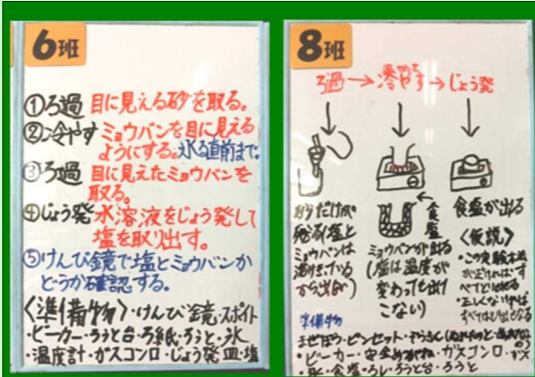 6班
①ろ過 目に見える砂を取る。
②冷やす ミョウバンを目に見える
ようにする。氷る直前まで。
③ろ過 目に見えたミョウバンを
取る。
④じょう発 水溶液をじょう発して
塩を取り出す。
⑤けんび鏡で塩とミョウバンか
どうか確認する。
〈準備物〉・けんび鏡・スポイト
・ビーカー・ろうと台・ろ紙・ろうと・氷
・温度計・ガスコンロ・じょう発皿・塩
8班
ろ過→冷やす→じょう発
砂だけが
残る(塩と
ミョウバンは
溶けている
から出ない)
食塩
ミョウバンが出る
(塩は温度が
変わっても出て
こない)
食塩が出る
〈仮説〉
・この実験方法
が正しければ、す
べてとり出せる
・正しくなければ、
準備物
まぜぼう・ピンセット・ぞうきん
・ビーカー・安全めがね・ガスコンロ・
氷・食塩・ろし・ろうと台・ろうと